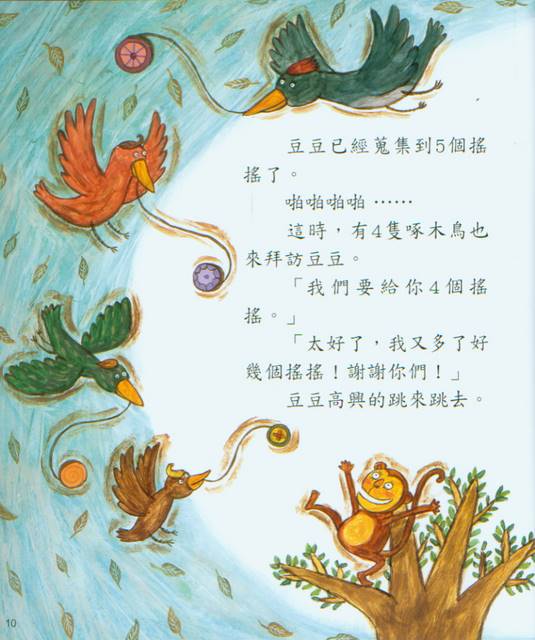 豆豆已經蒐集到5個搖
搖了。
啪啪啪啪……
這時，有4隻啄木鳥也
來拜訪豆豆。
「我們要給你4個搖
搖。」
「太好了，我又多了好
幾個搖搖！謝謝你們！」
豆豆高興的跳來跳去。
10